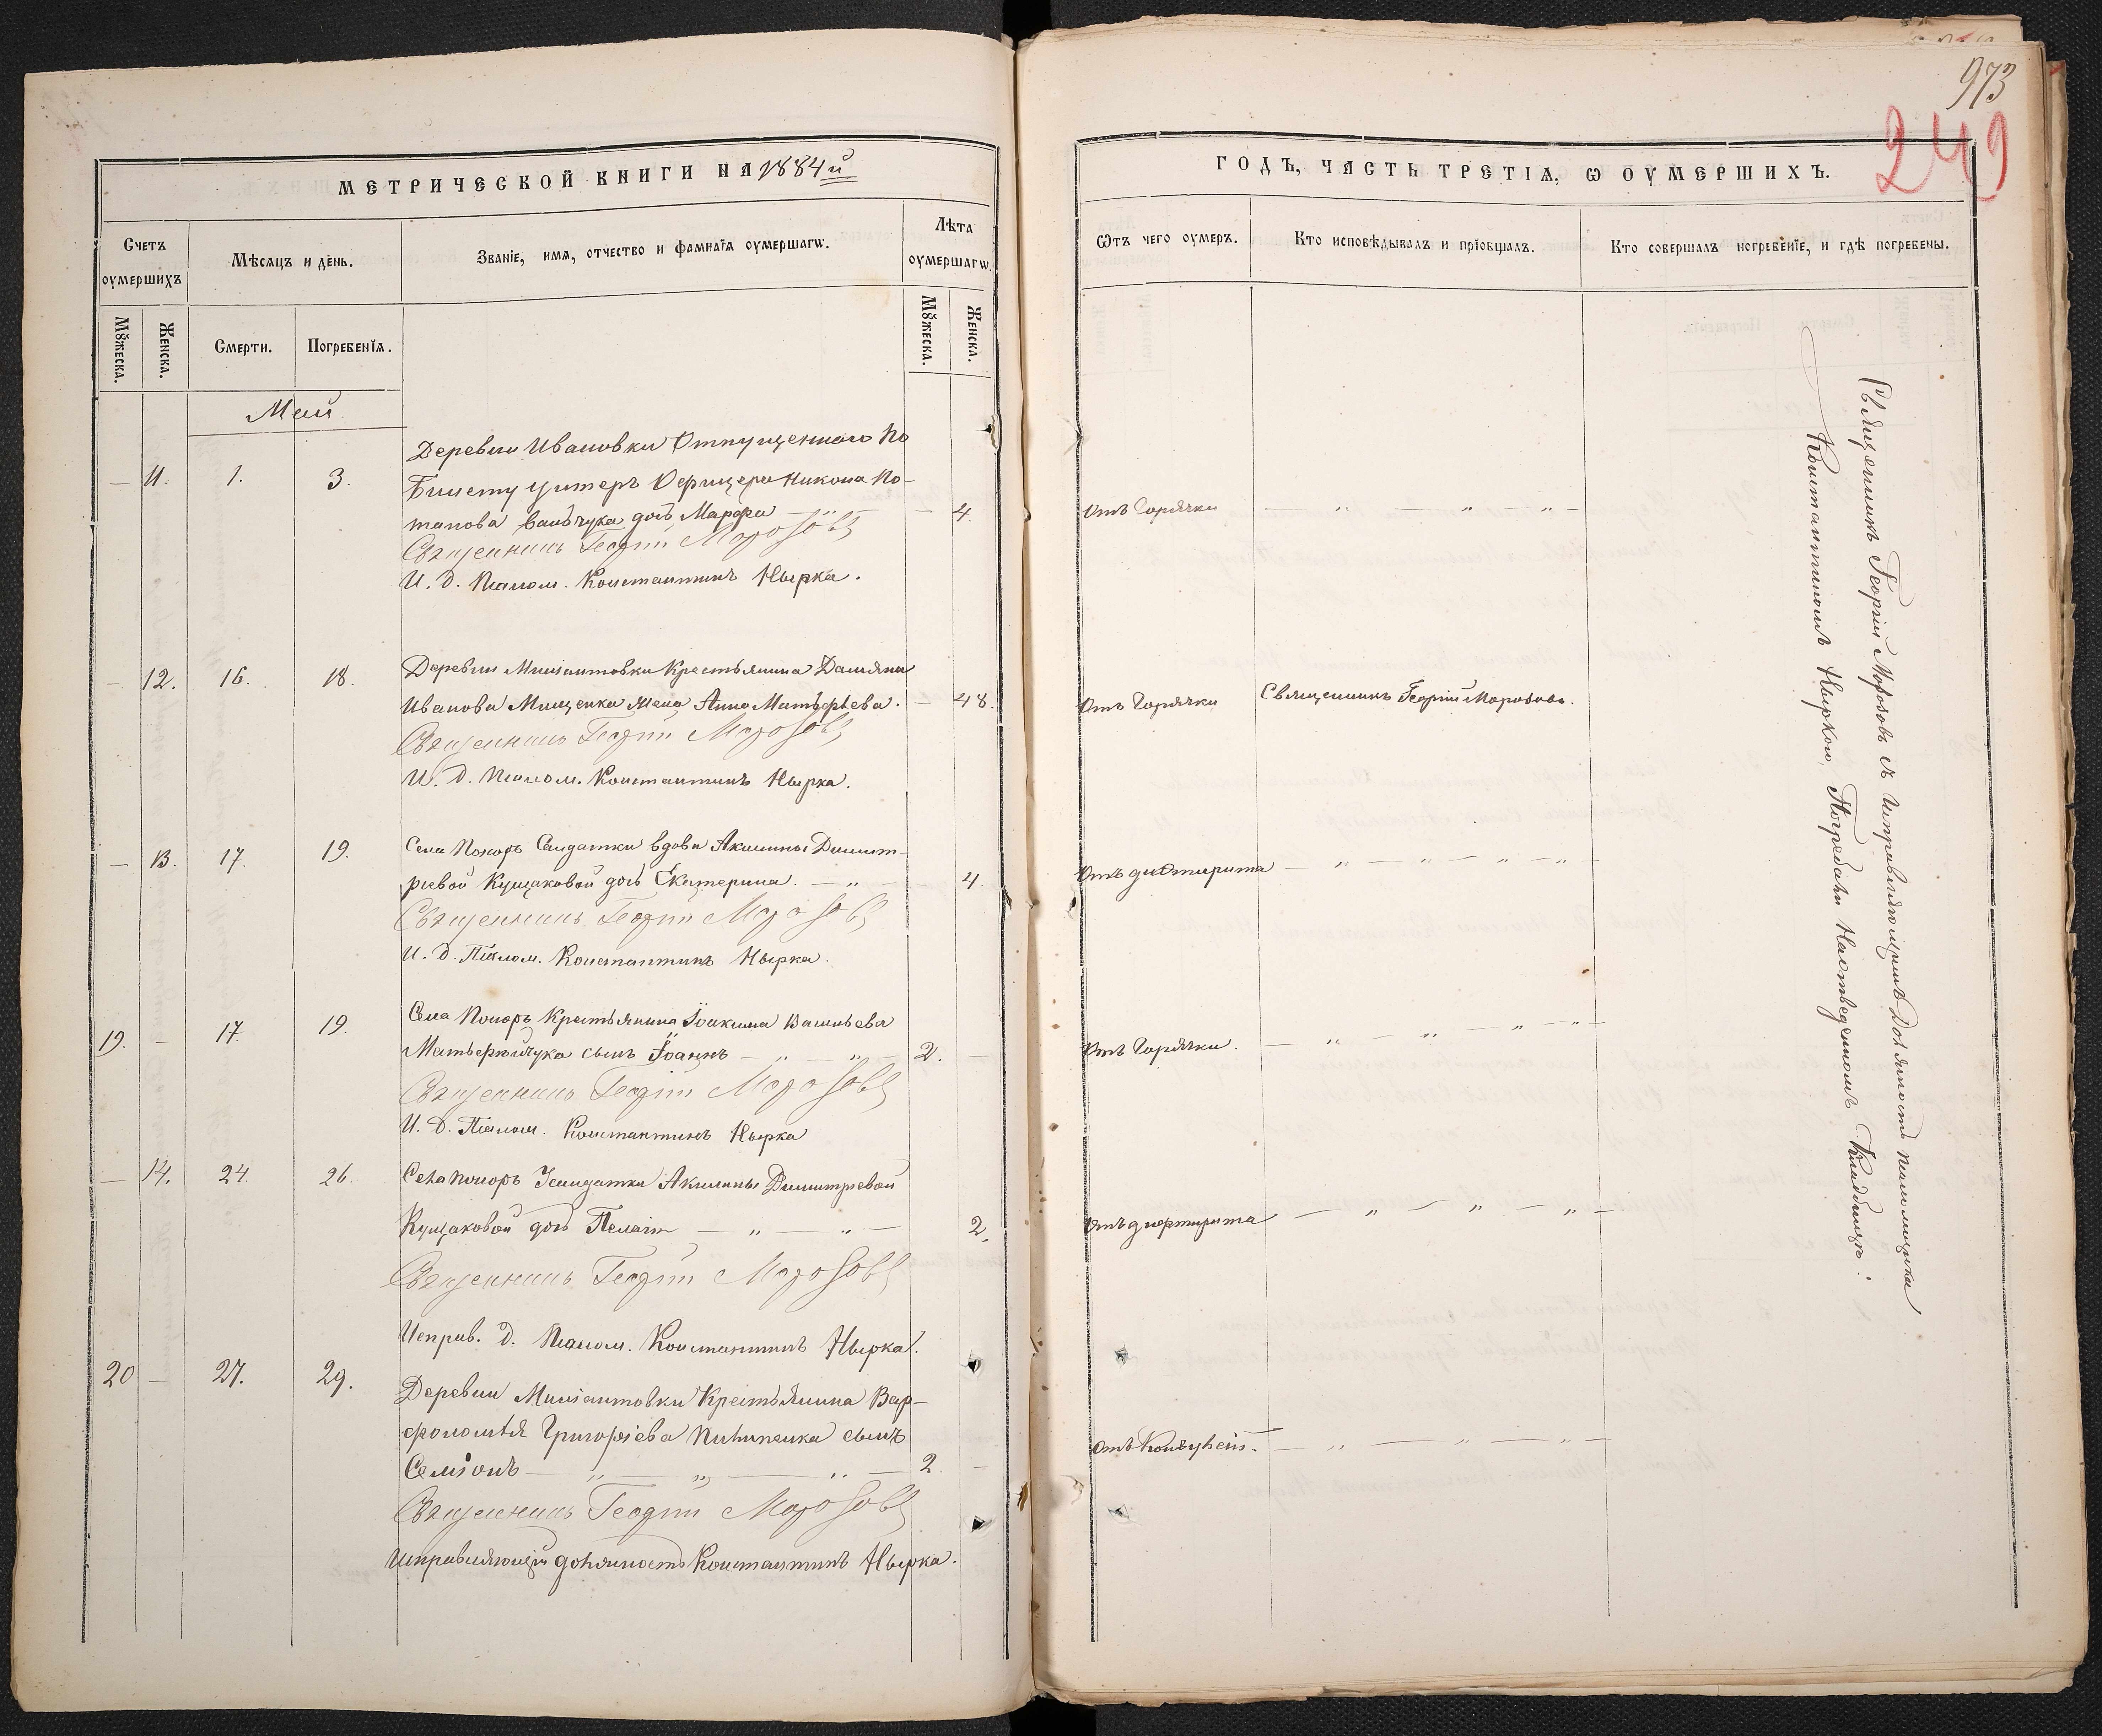 973
249
МЕТРИЧЕСКОЙ КНИГИ НА 1884й
ГОДЪ, ЧАСТЬ ТРЕТІѦ, Ѡ ОУМЕРШИХЪ.
Счетъ оумершихъ
Мѣсѧцъ и день.
Званіе, имѧ, отчество и фамиліѧ оумершагѡ.
Лѣта оумершагѡ.
Мꙋжеска.
Женска.
Смерти.
Погребеніѧ.
Мꙋжеска.
Женска.
Ѿтъ чего оумеръ.
Кто исповѣдывалъ и пріобщалъ.
Кто совершалъ погребеніе, и гдѣ погребены.
Май
Деревни Ивановки Отпущеннаго по
— 11. 1. 3. Билету унтеръ Офицера Никона По-
тапова дочь Марфа — 4. Отъ Горячки
Священникъ Георгій Морозовъ
И. д. Псалом. Константинъ Нырка.
— 12. 16. 18. Деревни Крестьянина Даміяна
Иванова Мищенка жена Анна Матѳѣева. — 48. Отъ Горячки Священникъ Георгій Морозовъ.
Священникъ Георгій Морозовъ
И. д. Псалом. Константинъ Нырка.
— 13. 17. 19. Села Солдатки вдовы Акилины Димит-
ріевой Кущаковой дочь Екатерина. — „ — 4. Отъ дифтирита
Священникъ Георгій Морозовъ
И. д. Псалом. Константинъ Нырка.
19. — 17. 19. Села Крестьянина Іоакима Васильева
сынъ Іоаннъ — „ — „ — 2. — Отъ Горячки.
Священникъ Георгій Морозовъ
И. д. Псалом. Константинъ Нырка
— 14. 24. 26. Села Солдатки Акилины Димитріевой
Кущаковой дочь Пелагія — „ — „ — 2. Отъ дифтирита
Священникъ Георгій Морозовъ
Исправ. д. Псалом. Константинъ Нырка.
20 — 27. 29. Деревни Крестьянина Вар-
фоломѣя Григоріева сынъ
Семіонъ — „ — „ — „ — 2 —
Священникъ Георгій Морозовъ
Исправляющій должность Константинъ Нырка.
Священникъ Георгій Морозовъ съ исправляющимъ Должность псаломщика
Константиномъ Ныркою, Погребали Кладбищѣ.